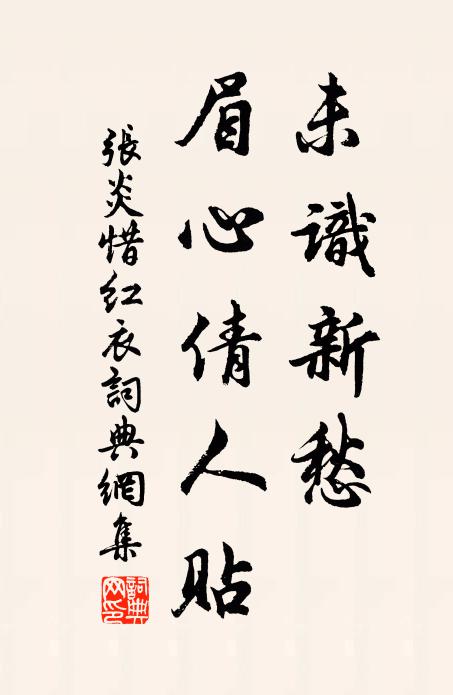 未識新愁
眉心倩人貼
張炎惜红衣詞典網集
詞典网印